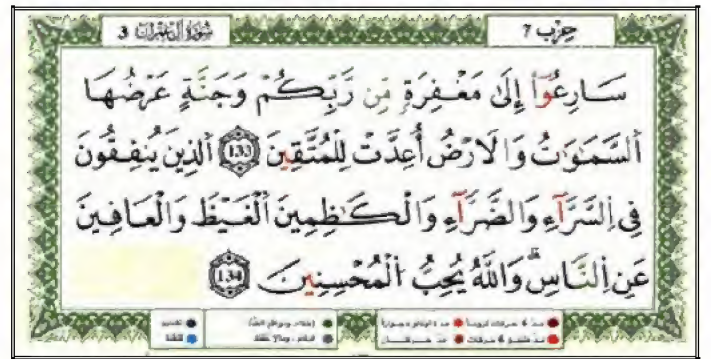 سُورَةُ آلِ عِمْرَانَ 3
حِزْب 7
سَارِعُوٓاْ إِلَىٰ مَغْفِرَةٍ مِّن رَّبِّكُمْ وَجَنَّةٍ عَرْضُهَا
اَ۬لسَّمَٰوَٰتُ وَالَارْضُ أُعِدَّتْ لِلْمُتَّقِينَ 133 اَ۬لذِينَ يُنفِقُونَ
فِي اِ۬لسَّرَّآءِ وَالضَّرَّآءِ وَالْكَٰظِمِينَ اَ۬لْغَيْظَ وَالْعَافِينَ
عَنِ اِ۬لنَّاسِۖ وَاللَّهُ يُحِبُّ اُ۬لْمُحْسِنِينَ 134